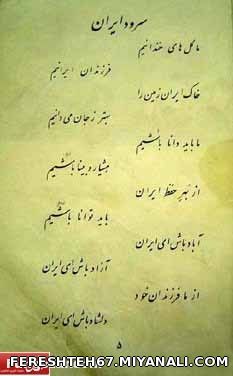 سرود ایران
ما گل های خندانیم
فرزندان ایرانیم
خاک ایران زمین را
بهتر ز جان می دانیم
ما باید دانا باشیم
هشیار و بینا باشیم
از بهر حفظ ایران
باید توانا باشیم
آباد باش ای ایران
آزاد باش ای ایران
از ما فرزندان خود
دلشاد باش ای ایران
۵
FERESHTEH67.MIYANALI.COM